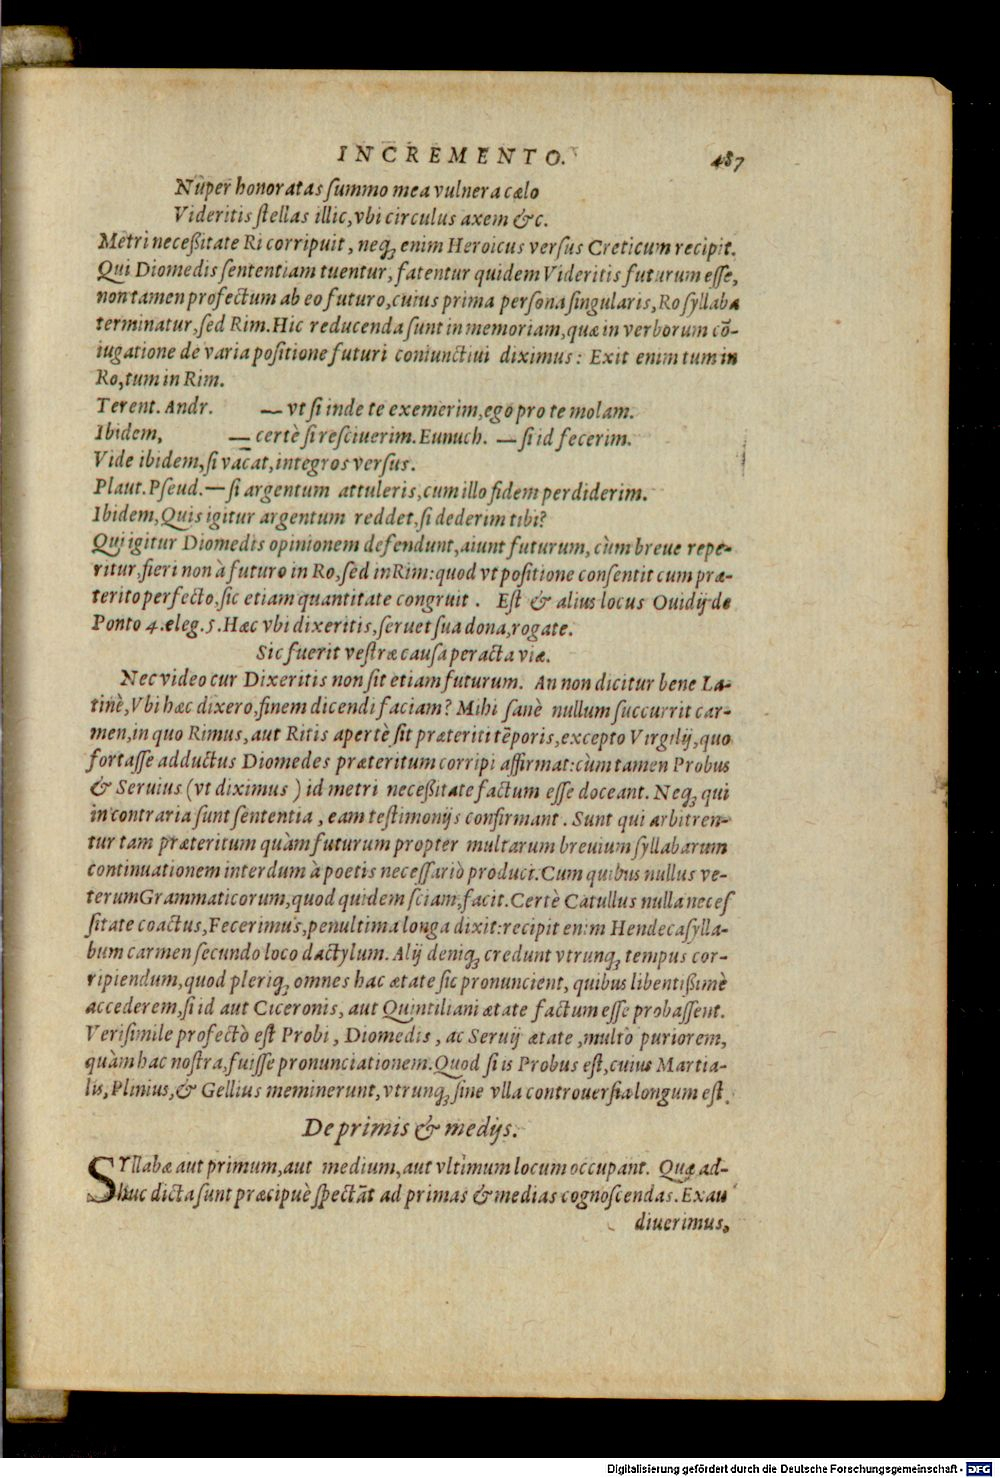 INCREMENTO. 487
Nuper honoratas summo mea vulnera cælo
Videritis stellas illic, vbi circulus axem &c.
Metri necessitate Ri corripuit, neq; enim Heroicus versus Creticum recipit.
Qui Diomedis sententiam tuentur, fatentur quidem Videritis futurum esse,
non tamen profectum ab eo futuro, cuius prima persona singularis, Ro syllaba
terminatur, sed Rim. Hic reducenda sunt in memoriam, quæ in verborum cō-
iugatione de varia positione futuri coniunctiui diximus: Exit enim tum in
Ro, tum in Rim.
Terent. Andr. — vt si inde te exemerim, ego pro te molam.
Ibidem, — certè si resciuerim. Eunuch. — si id fecerim.
Vide ibidem, si vacat, integros versus.
Plaut. Pseud. — si argentum attuleris, cum illo fidem perdiderim.
Ibidem, Quis igitur argentum reddet, si dederim tibi?
Qui igitur Diomedis opinionem defendunt, aiunt futurum, cùm breue repe-
ritur, fieri non à futuro in Ro, sed in Rim: quod vt positione consentit cum præ-
terito perfecto, sic etiam quantitate congruit. Est & alius locus Ouidij de
Ponto 4. eleg. 5. Hæc vbi dixeritis, seruet sua dona, rogate.
Sic fuerit vestræ causa peracta viæ.
Nec video cur Dixeritis non sit etiam futurum. An non dicitur bene La-
tinè, Vbi hæc dixero, finem dicendi faciam? Mihi sanè nullum succurrit car-
men, in quo Rimus, aut Ritis apertè sit præteriti tēporis, excepto Virgilij, quo
fortasse adductus Diomedes præteritum corripi affirmat: cùm tamen Probus
& Seruius (vt diximus) id metri necessitate factum esse doceant. Neq; qui
in contraria sunt sententia, eam testimonijs confirmant. Sunt qui arbitren-
tur tam præteritum quàm futurum propter multarum breuium syllabarum
continuationem interdum à poetis necessariò produci. Cum quibus nullus ve-
terum Grammaticorum, quod quidem sciam, facit. Certè Catullus nulla neces
sitate coactus, Fecerimus, penultima longa dixit: recipit enim Hendecasylla-
bum carmen secundo loco dactylum. Alij deniq; credunt vtrunq; tempus cor-
ripiendum, quod pleriq; omnes hac ætate sic pronuncient, quibus libentissimè
accederem, si id aut Ciceronis, aut Quintiliani ætate factum esse probassent.
Verisimile profectò est Probi, Diomedis, ac Seruij ætate, multò puriorem,
quàm hac nostra, fuisse pronunciationem. Quod si is Probus est, cuius Martia-
lis, Plinius, & Gellius meminerunt, vtrunq; sine vlla controuersia longum est.
De primis & medijs.
Syllabæ aut primum, aut medium, aut vltimum locum occupant. Quæ ad-
huc dicta sunt præcipuè spectāt ad primas & medias cognoscendas. Ex au
diuerimus,
Digitalisierung gefördert durch die Deutsche Forschungsgemeinschaft - DFG